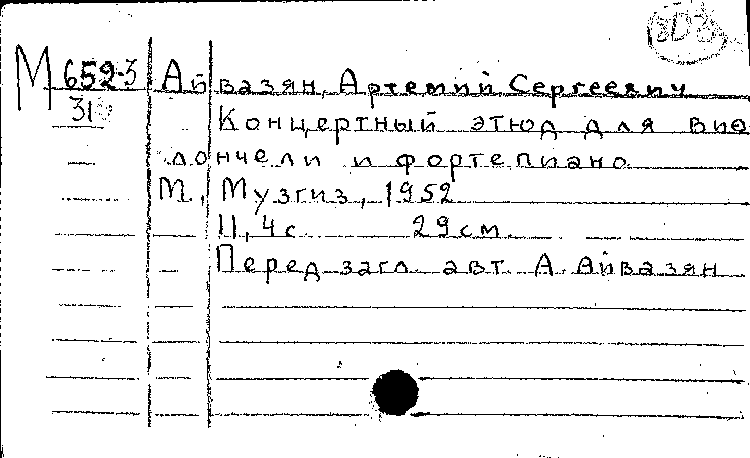 М 652-3 Айвазян, Артемий Сергеевич
31
Концертный этюд для вио
лончели и фортепиано
М., Музгиз, 1952
11, 4 с 29 см
Перед загл. авт. А. Айвазян